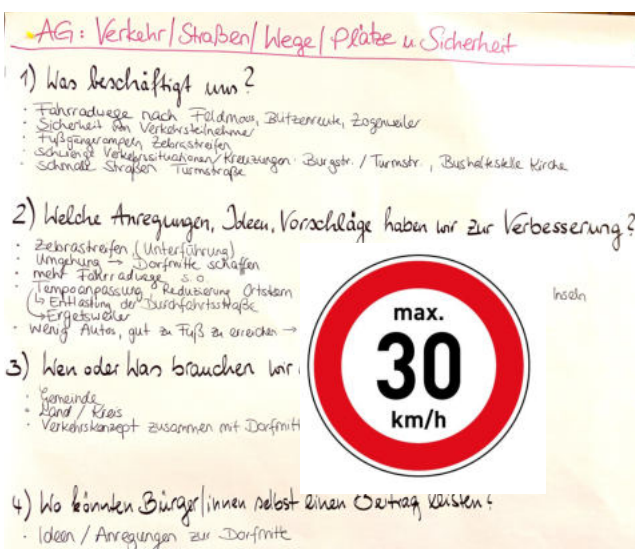 AG: Verkehr/Straßen/Wege/Plätze u. Sicherheit
1) Was beschäftigt uns?
· Fahrradwege nach Feldmoos, Blitzenreute, Zogenweiler
· Sicherheit von Verkehrsteilnehmer
· Fußgängerampeln Zebrastreifen
· schwierige Verkehrssituationen/Kreuzungen Burgstr. / Turmstr., Bushaltestelle Kirche
· schmale Straßen Turmstraße
2) Welche Anregungen, Ideen, Vorschläge haben wir zur Verbesserung?
· Zebrastreifen (Unterführung)
· Umgehung → Dorfmitte schaffen
· mehr Fahrradwege s.o.
· Tempoanpassung Reduzierung Ortskern Inseln
(↳ Entlastung der Durchfahrtsstraße
↳ Ergetsweiler
· wenig Autos, gut zu Fuß zu erreichen →
3) Wen oder Was brauchen wir
· Gemeinde
· Land / Kreis
· Verkehrskonzept zusammen mit
4) Wo könnten Bürger/innen selbst einen Beitrag leisten?
· Ideen / Anregungen zur Dorfmitte
max.
30
km/h